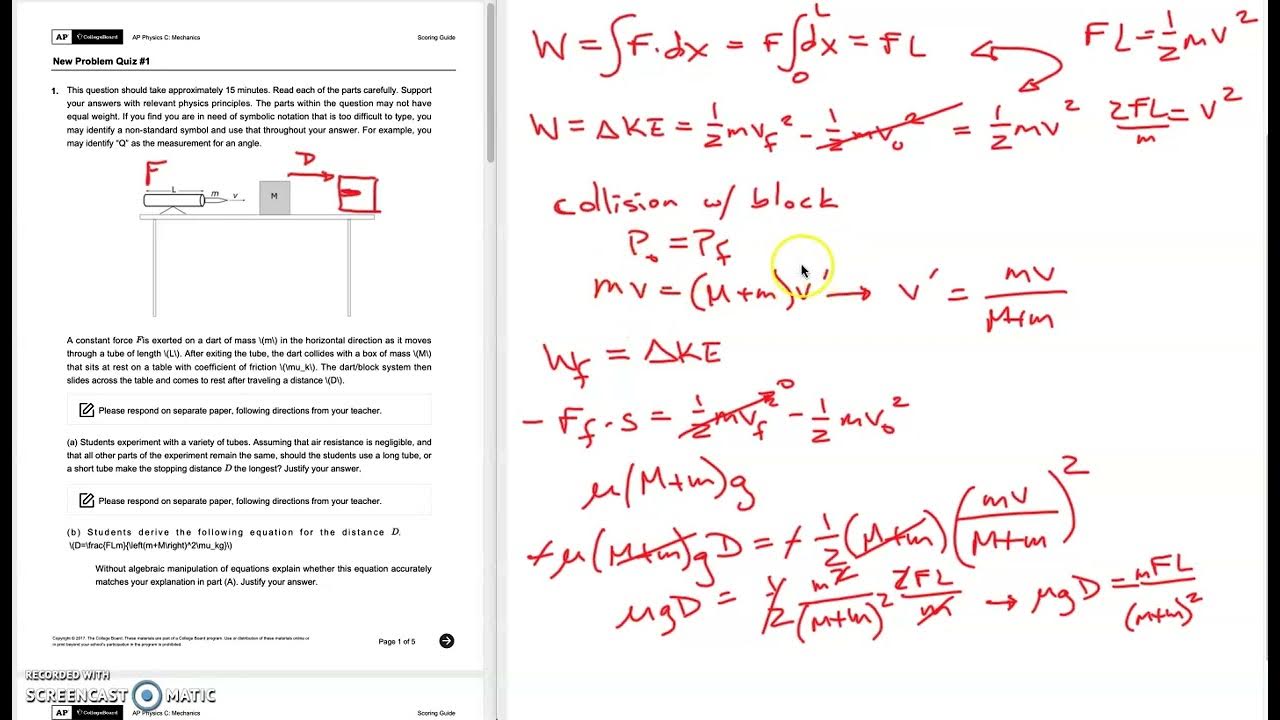 AP CollegeBoard AP Physics C: Mechanics Scoring Guide
New Problem Quiz #1
1. This question should take approximately 15 minutes. Read each of the parts carefully. Support
your answers with relevant physics principles. The parts within the question may not have
equal weight. If you find you are in need of symbolic notation that is too difficult to type, you
may identify a non-standard symbol and use that throughout your answer. For example, you
may identify "Q" as the measurement for an angle.
F D
L m v M
A constant force F is exerted on a dart of mass \(m\) in the horizontal direction as it moves
through a tube of length \(L\). After exiting the tube, the dart collides with a box of mass \(M\)
that sits at rest on a table with coefficient of friction \(\mu_k\). The dart/block system then
slides across the table and comes to rest after traveling a distance \(D\).
Please respond on separate paper, following directions from your teacher.
(a) Students experiment with a variety of tubes. Assuming that air resistance is negligible, and
that all other parts of the experiment remain the same, should the students use a long tube, or
a short tube make the stopping distance D the longest? Justify your answer.
Please respond on separate paper, following directions from your teacher.
(b) Students derive the following equation for the distance D.
\(D=\frac{FLm}{\left(m+M\right)^2\mu_kg}\)
Without algebraic manipulation of equations explain whether this equation accurately
matches your explanation in part (A). Justify your answer.
Copyright © 2017. The College Board. These materials are part of a College Board program. Use or distribution of these materials online or
in print beyond your school's participation in the program is prohibited.
Page 1 of 5
RECORDED WITH
SCREENCAST MATIC
AP CollegeBoard AP Physics C: Mechanics Scoring Guide
W = ∫F·dx = F∫₀ᴸdx = FL FL = ½mv²
W = ΔKE = ½mv_f² - ½mv₀² 0 = ½mv² 2FL/m = v²
collision w/ block
P₀ = P_f
mv = (M+m)v' → v' = mv/(M+m)
W_f = ΔKE
- F_f · s = ½mv_f² 0 - ½mv₀²
μ(M+m)g
-μ(M+m)gD = -½(M+m)(mv/(M+m))²
μgD = 1/2 m²/(M+m)² 2FL/m → μgD = mFL/(m+m)²